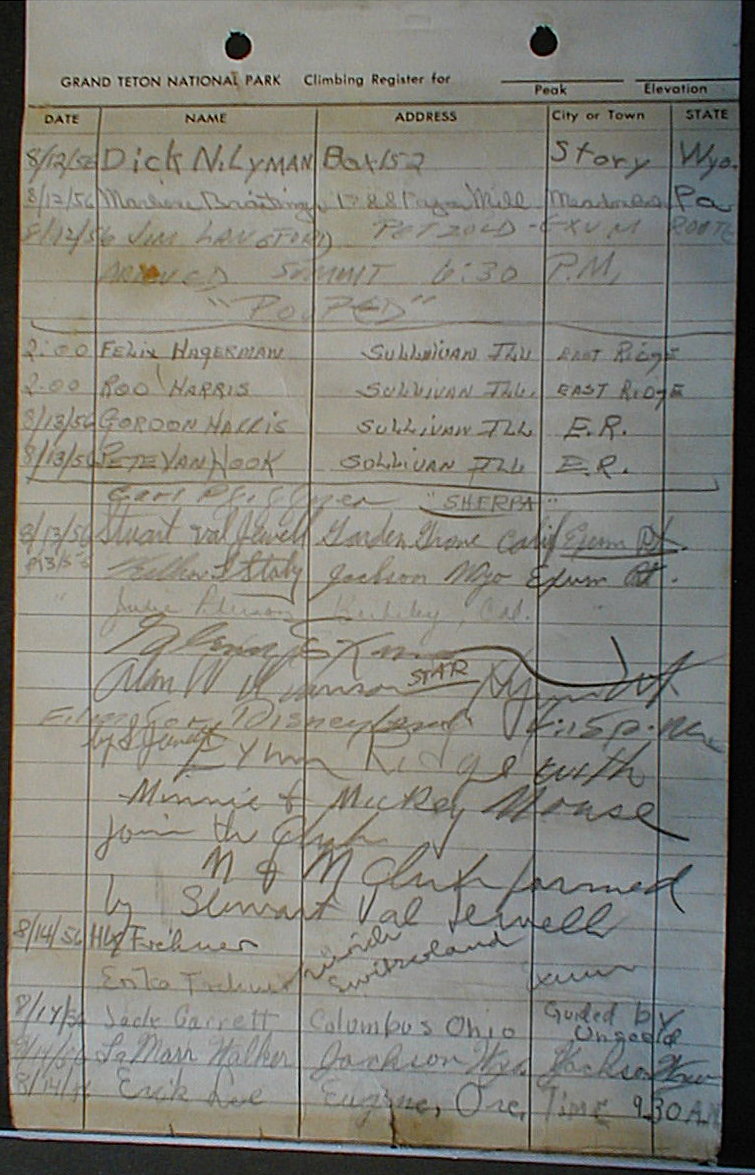 GRAND TETON NATIONAL PARK Climbing Register for
Peak Elevation
DATE NAME ADDRESS City or Town STATE
8/12/56 Dick N. LYMAN Box 152 Story Wyo.
8/12/56 Mill Pa
8/12/56 JIM LANGFORD PETZOLD - EXUM ROUTE
ARRIVED SUMMIT 6:30 P.M,
"POOPED"
2:00 FELIX HAGERMAN SULLIVAN ILL EAST RIDGE
2:00 ROD HARRIS SULLIVAN ILL. EAST RIDGE
8/13/56 GORDON HARRIS SULLIVAN ILL E.R.
8/13/56 PETE VAN HOOK SULLIVAN ILL E.R.
"SHERPA"
8/13/56 Stuart Val Jewell Garden Grove Calif Exum Rt.
8/13/56 Staly Jackson Wyo Exum Rt.
" Julie Cal. "
STAR
Disneyland 4:15 p.m.
by S Jewell Exum Ridge with
Minnie & Mickey Mouse
join the Club
M & M Club formed
by Stewart Val Jewell
8/14/56 Switzerland
Erika Exum
8/14/56 Jack Garrett Columbus Ohio Guided by
Ungsold
8/14/56 La Marr Walker Jackson Wyo. Jackson
8/14/56 Erik Eugene, Ore, Time 9.30 AM